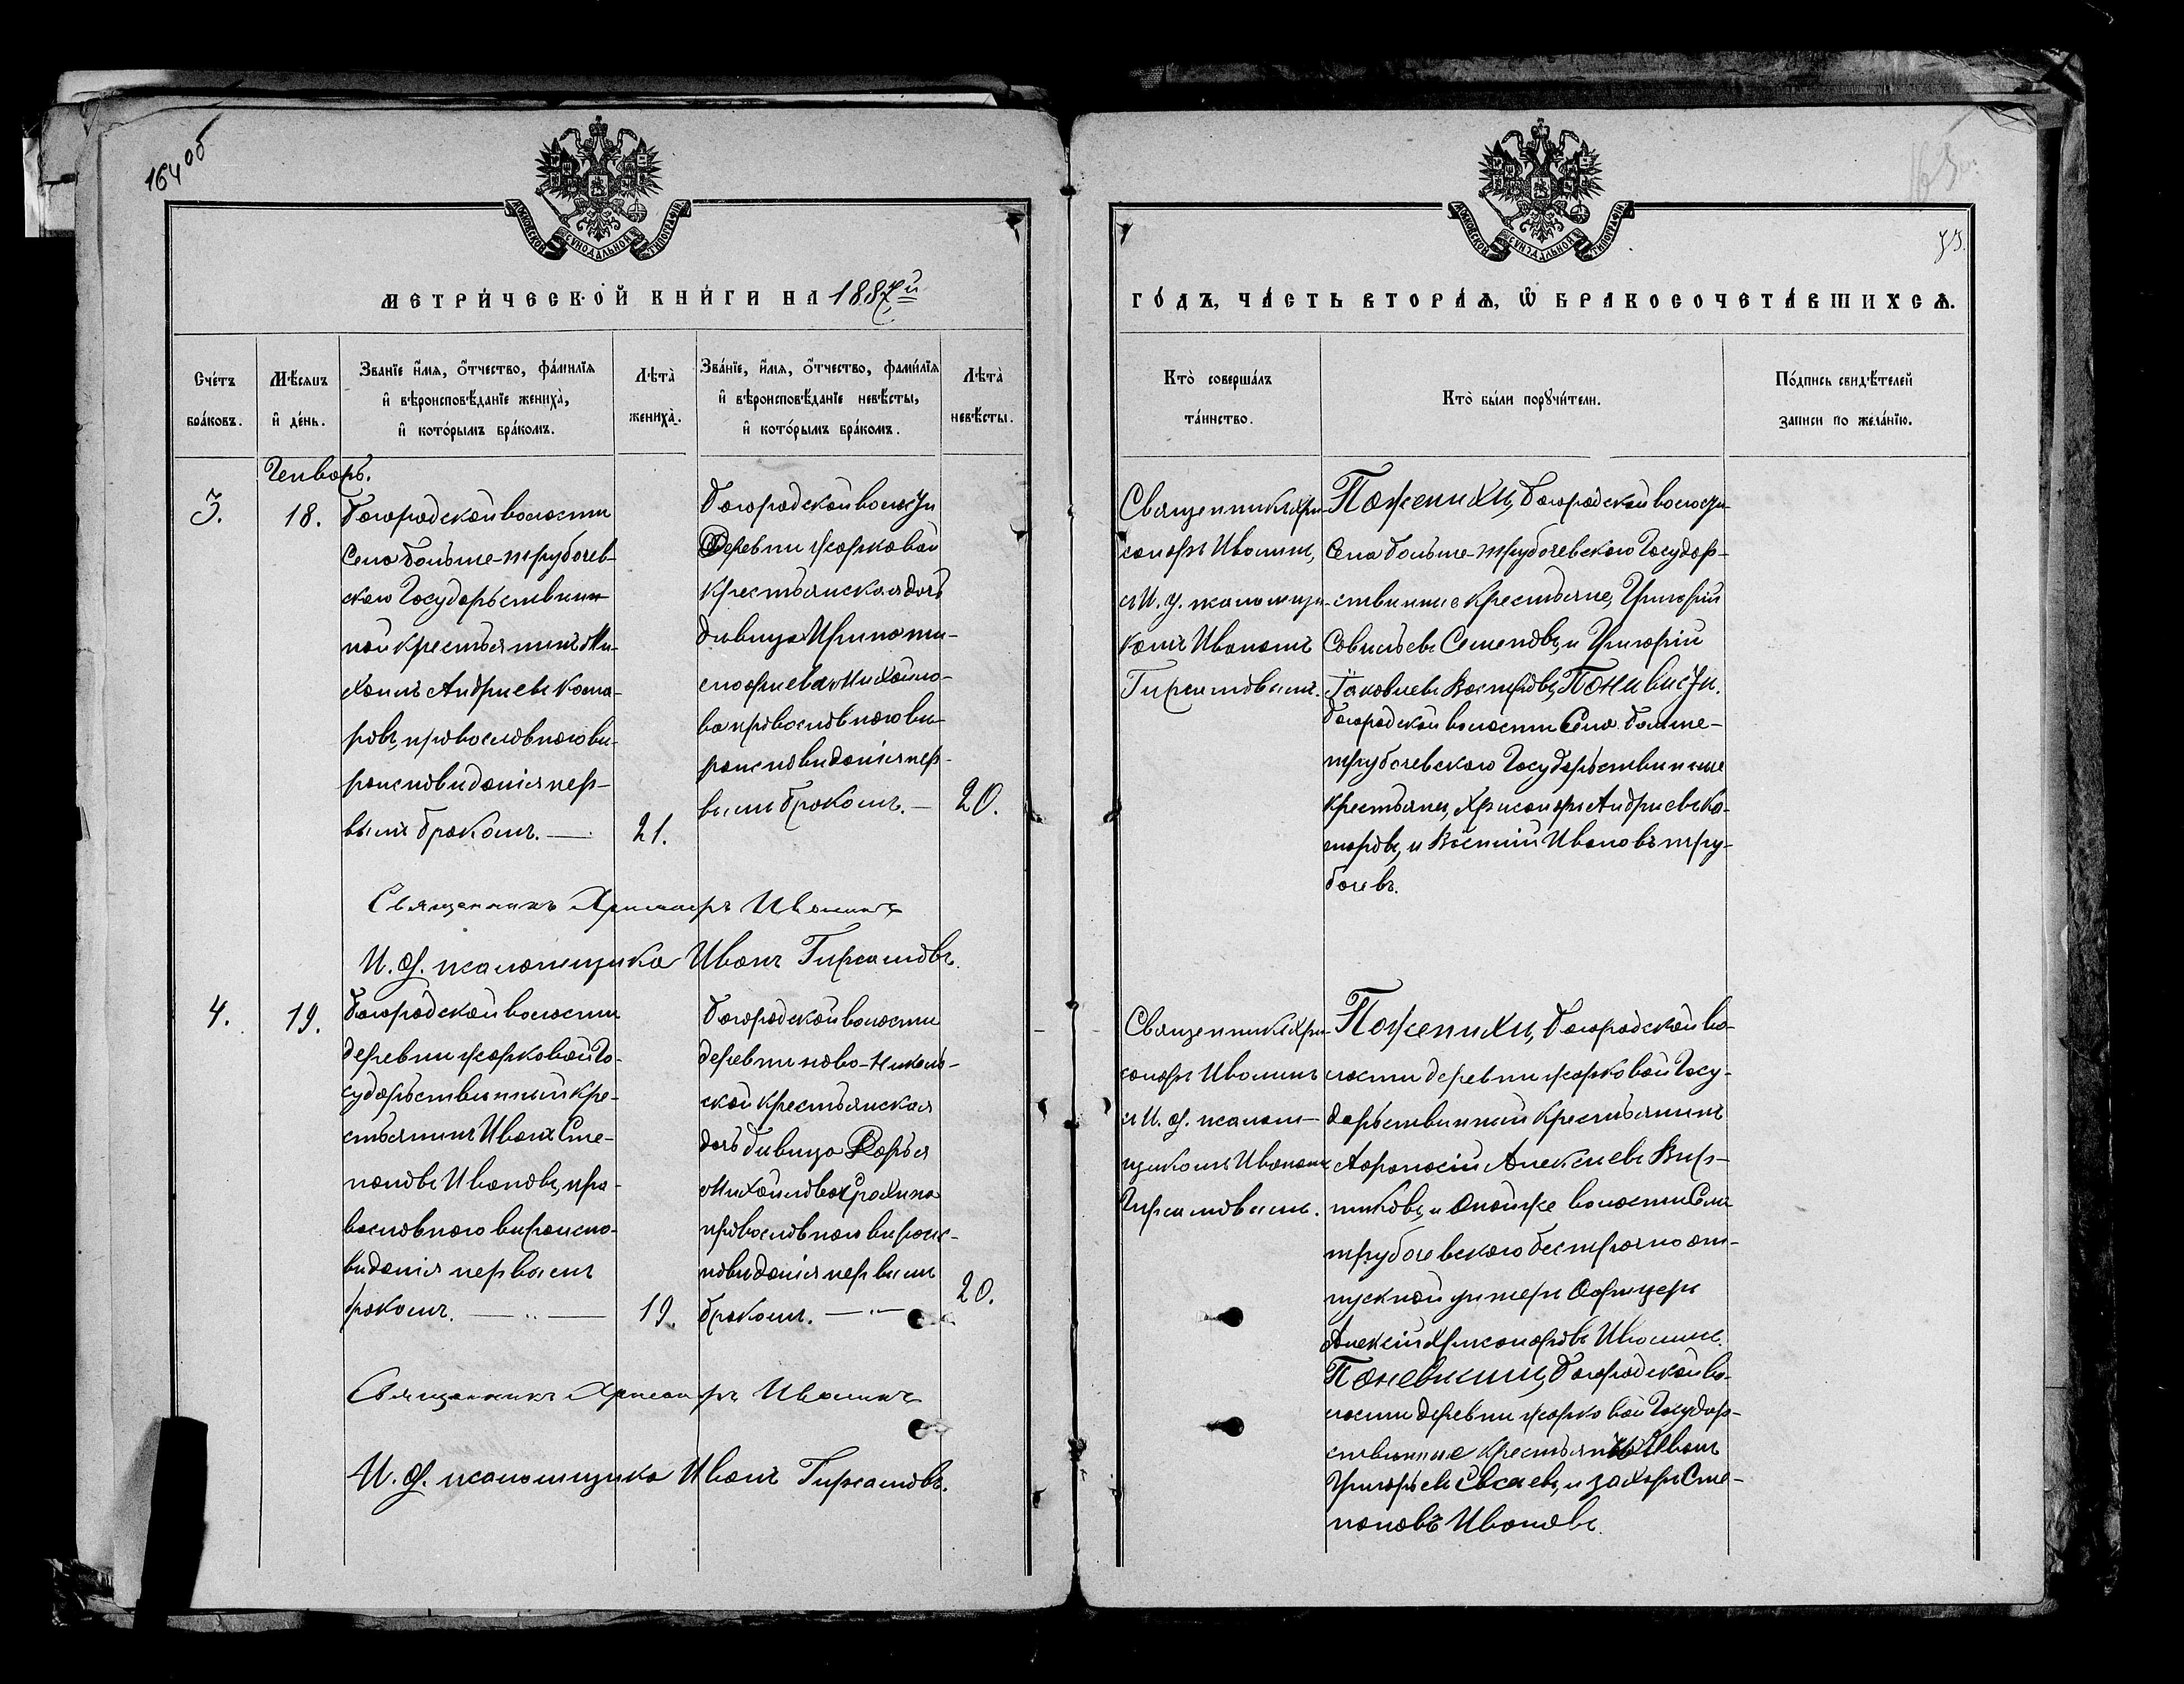 164 об
МОСКОВСКОЙ СѴНОДАЛЬНОЙ ТИПОГРАФІИ
МЕТРИ́ЧЕСКОЙ КНИ́ГИ НА 1887й
Сче́тъ бра́ковъ.
Мѣ́сяцъ и де́нь.
Зва́нїе и҆́мя, ѻ҆́тчество, фамѝлїя и҆ вѣроисповѣ́данїе жениха̀, и҆ кото́рымъ бра́комъ.
Лѣта̀ жениха̀.
Зва́нїе, и҆́мя, ѻ҆́тчество, фамѝлїя и҆ вѣроисповѣ́данїе невѣ́сты, и҆ кото́рымъ бра́комъ.
Лѣта̀ невѣ́сты.
Генварь.
3.
18.
Богородской волости
Села больше-трубочев-
скаго Государьственн
ной крестьянинъ Ми-
хаилъ Андриевъ Кома-
ровъ, православнаго ви-
роисповиданія пер-
вымъ бракомъ. —
21.
Богородской волости
Деревни жарковой
крестьянская дочь
дивица Ирина ти-
мофиева Михайло-
ва православнаго ви-
роисповиданія пер-
вымъ бракомъ. —
20.
Священникъ Хрисанфъ Ивашинъ
И. д. псаломщика Иванъ Гирсамовъ.
4.
19.
Богородской волости
деревни жарковой Го-
сударьствинный кре-
стьянинъ Иванъ Сте-
пановъ Ивановъ, пра-
вославнаго вироиспо-
виданія первымъ
бракомъ. — „ —
19.
Богородской волости
деревни ново-Николь-
ской крестьянская
дочь дивица Дарья
Михайлова Грахина
православнаго вироис-
повиданія первымъ
бракомъ. — „ —
20.
Священникъ Хрисанфъ Ивашинъ
И. д. псаломщика Иванъ Гирсамовъ.
МОСКОВСКОЙ СѴНОДАЛЬНОЙ ТИПОГРАФІИ
ГО́ДЪ, ЧА́СТЬ ВТОРА́Я, Ѡ҆ БРАКОСОЧЕТА́ВШИХСЯ.
Кто̀ соверша́лъ та́инство.
Кто̀ бы́ли порꙋчи́тели.
По́дпись свидѣ́телей записи по жела́нїю.
Священникъ Хри-
санфъ Ивашинъ,
и И. д. псаломщи-
комъ Иваномъ
Гирсамовымъ.
По женихи, Богородской волости
Села больше-трубочевскаго Государ-
ствинные Крестьяне, Григорій
Савильевъ Семеновъ, и Григорій
Іаковлевъ Востровъ, По нивисти.
Богородской волости Села больше-
трубочевскаго Государьствинные
крестьяне, Хрисанфъ Андриевъ Ко-
маровъ, и Василій Ивановъ тру-
бочевъ.
Священникъ Хри-
санфъ Ивашинъ
и И. д. псалом-
щикомъ Иваномъ
Гирсамовымъ.
По женихи, Богородской во-
лости деревни жарковой Госу-
дарьствинный крестьянинъ
Афанасій Алексиевъ Вир-
никовъ, и оной же волости Села
трубочевскаго бестрочно от-
пускной унтеръ Офицеръ
Алексій Хрисанфовъ Ивашинъ.
По невисти, Богородской во-
лости деревни жарковой Государ-
ствинные крестьяне Иванъ
Григорьевъ Евсиевъ, и захаръ Сте-
пановъ Ивановъ.